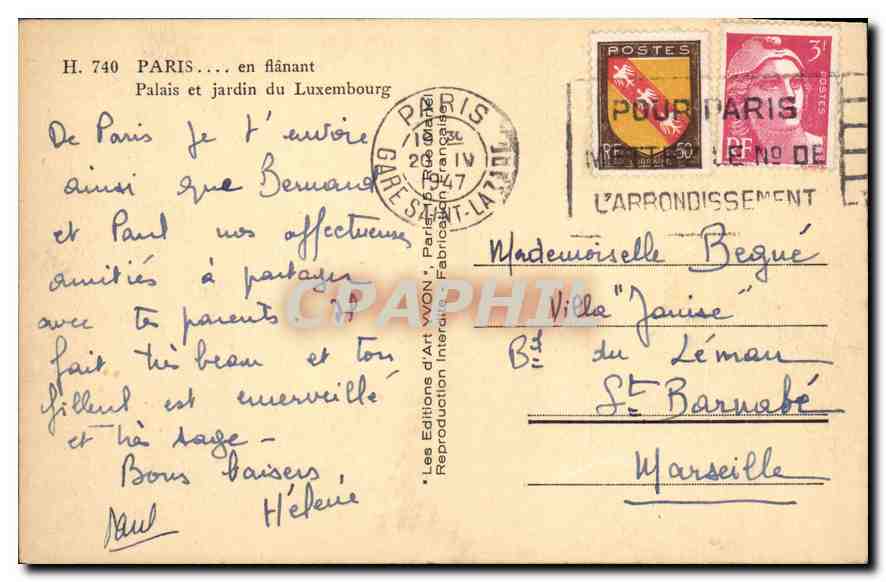 H. 740 PARIS.... en flânant
Palais et jardin du Luxembourg
De Paris je t'envoie
ainsi que Bernard
et Paul nos affectueuses
amitiés à partager
avec tes parents. Il
fait très beau et ton
filleul est emerveillé
et très sage -
Bons baisers
Hélène
Paul
"Les Editions d'Art YVON", Paris, 15, Rue Martel
Reproduction Interdite Fabrication Française
PARIS
20 IV
1947
GARE SAINT-LAZARE
POSTES
RF
LORRAINE
50
3F
POSTES
RF
POUR PARIS
METTRE LE No DE
L'ARRONDISSEMENT
Mademoiselle Begué
Villa "Janise"
Bd du Léman
St Barnabé
Marseille
CPAPHIL